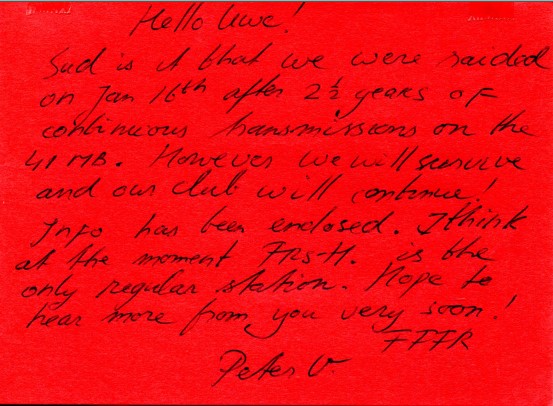 Hello Uwe!
Sad is it that we were raided
on Jan 16th after 2½ years of
continuous transmissions on the
41 MB. However we will survive
and our club will continue!
Info has been enclosed. I think
at the moment FRS-H. is the
only regular station. Hope to
hear more from you very soon!
FFFR
Peter V.